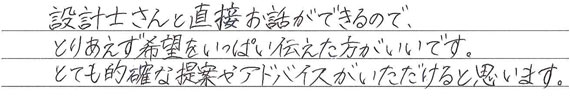 設計士さんと直接お話ができるので、
とりあえず希望をいっぱい伝えた方がいいです。
とても的確な提案やアドバイスがいただけると思います。